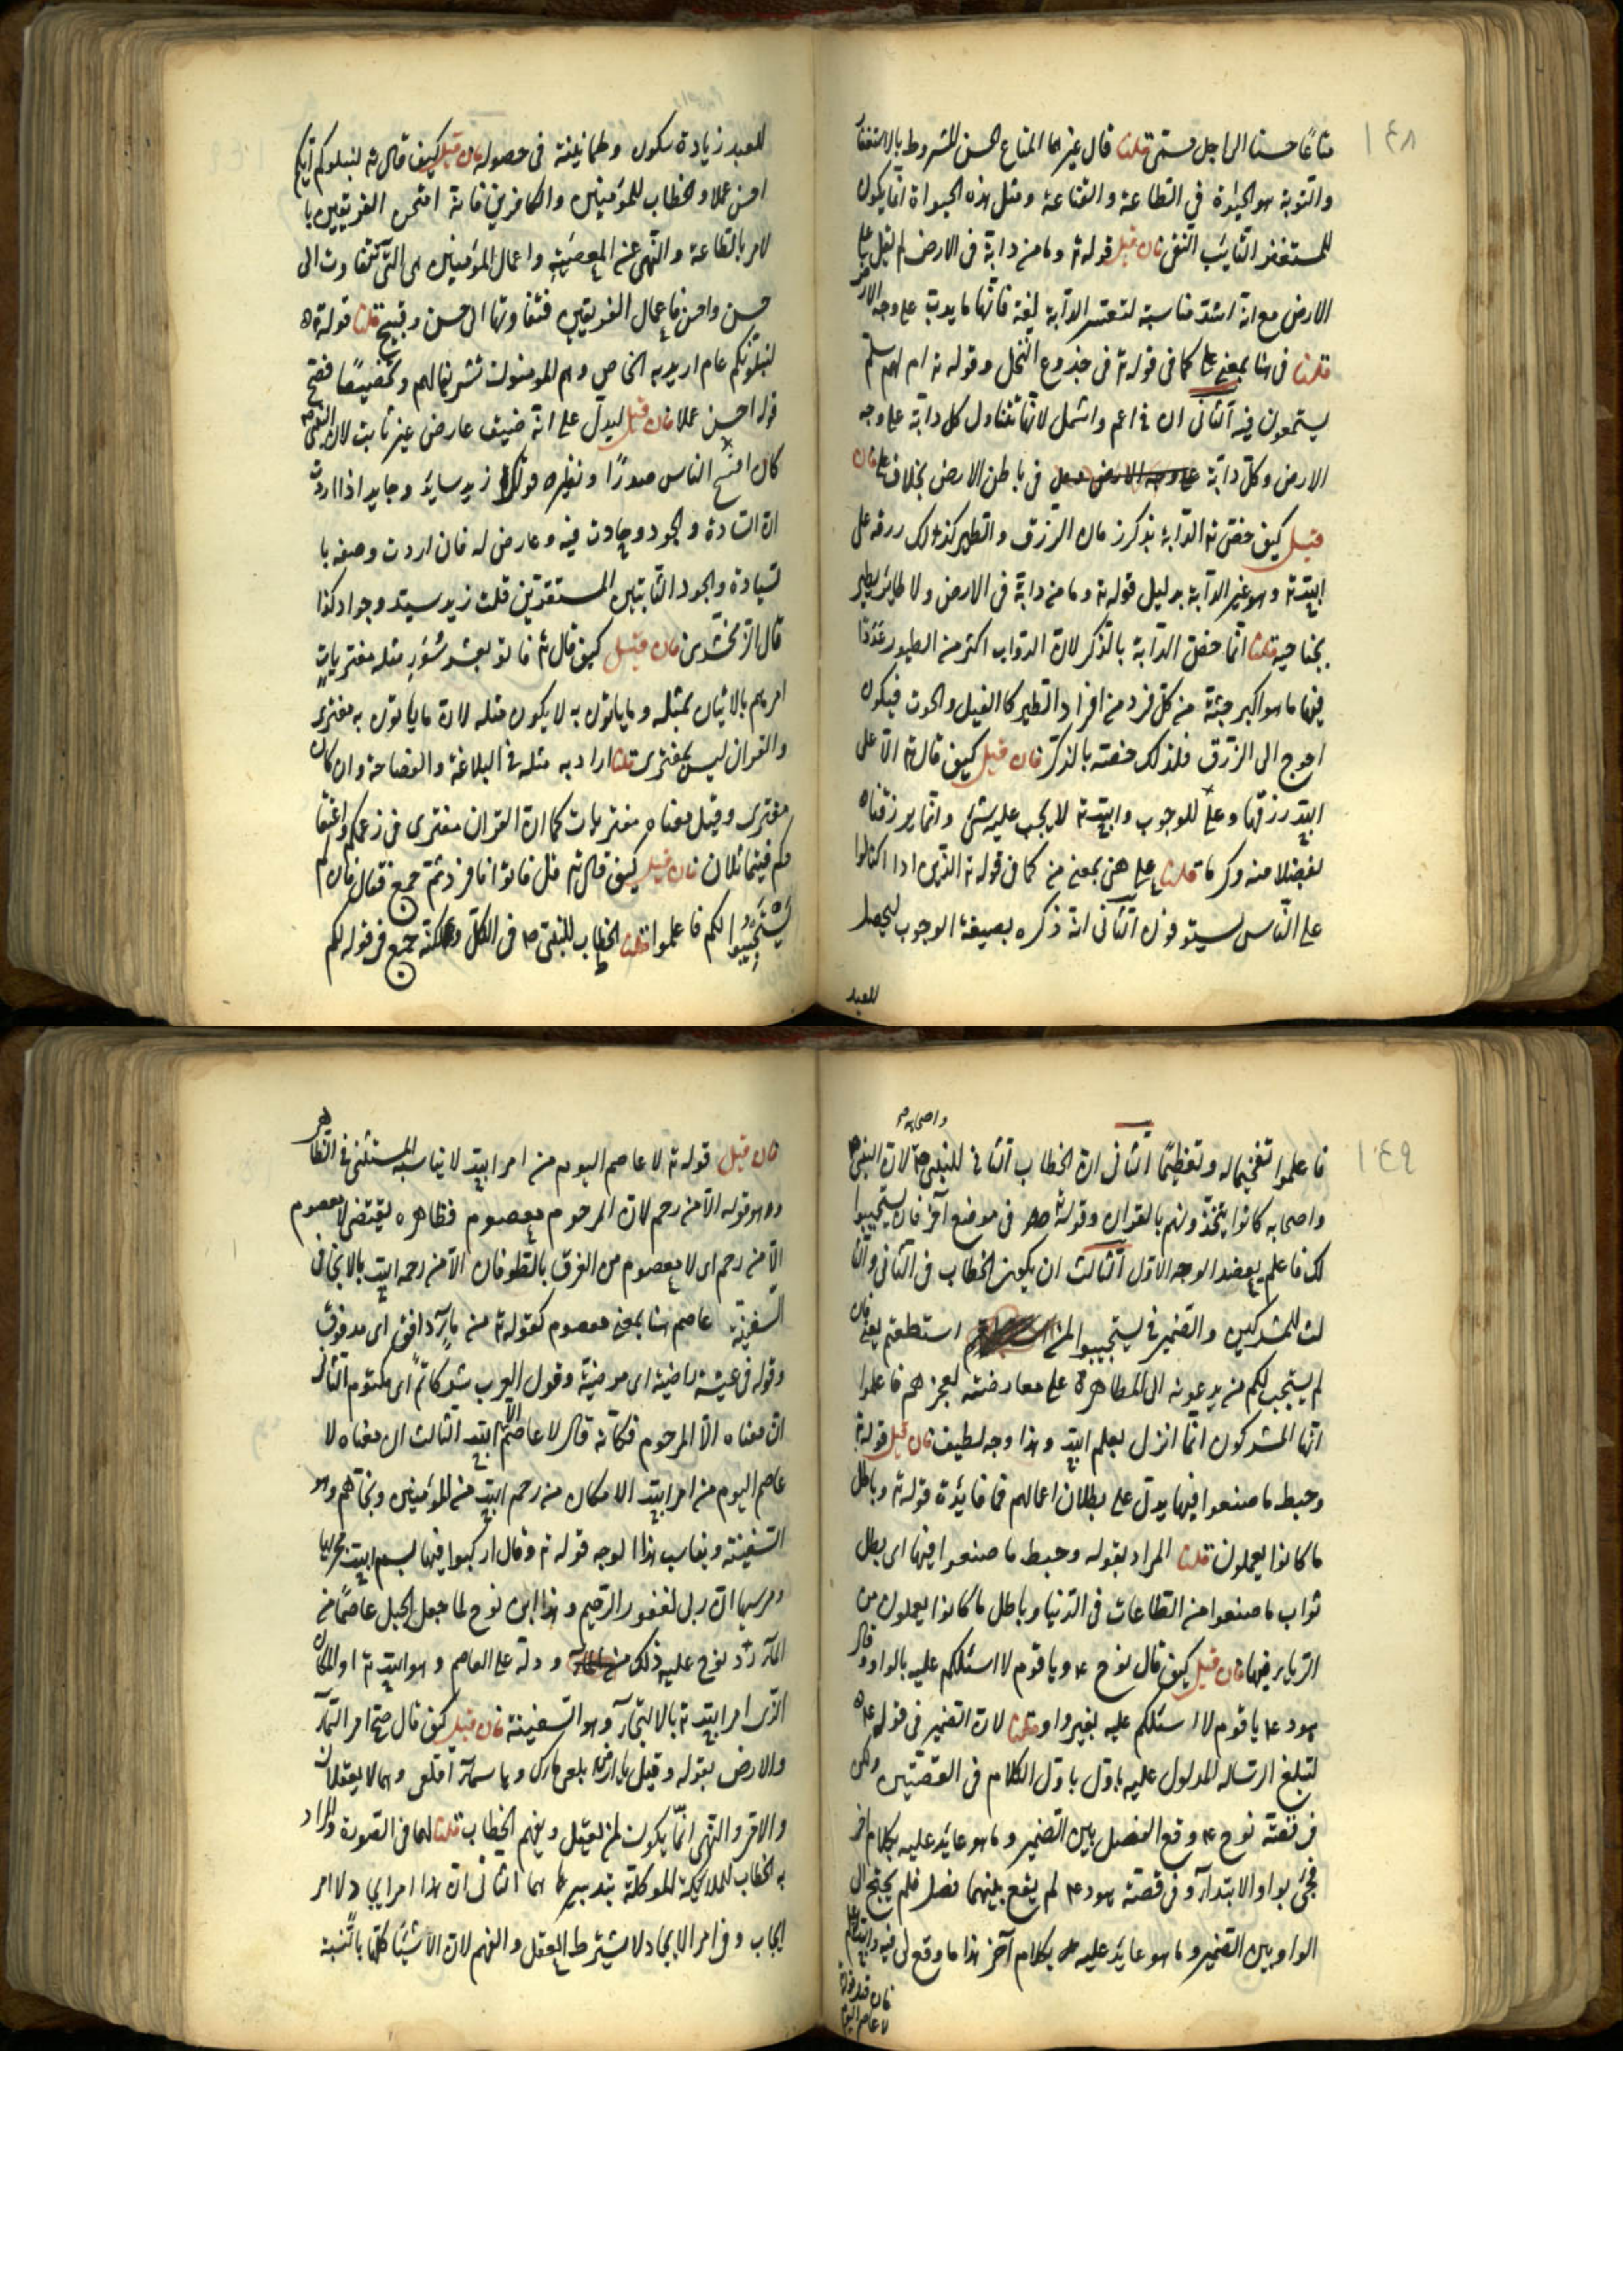 ١٤٨
متاعا حسنا الى اجل مسمى قلنا قال غيرهما المتاع الحسن المشروط بالاستغفار
والتوبة هو الحيوة فى الطاعة والقناعة ومثل هذه الحيواة انما يكون
للمستغفر التايب التقى فان قيل قوله تع وما من دابة فى الارض لم لم يقل على
الارض مع انه اشد مناسبة لتفسير الدابة لغة فانها ما يدب على وجه الارض
قلنا فى هنا بمعنى على كما فى قوله تع فى جذوع النخل وقوله تع ام لهم سلم
يستمعون فيه الثانى ان فى اعم واشمل لانها تتناول كل دابة على وجه
الارض وكل دابة فى باطن الارض بخلاف على فان
قيل كيف خص تع الدابة بذكر ضمان الرزق والطير كذلك رزقه على
الله تع وهو غير الدابة بدليل قوله تع وما من دابة فى الارض ولا طاير يطير
بجناحيه قلنا انما خص الدابة بالذكر لان الدواب اكثر من الطيور عددا
فيها ما هو اكبر جثة من كل فرد من افراد الطير كالفيل والحوت فيكون
احوج الى الرزق فلذلك خصه بالذكر فان قيل كيف قال تع الا على
الله رزقها وعلى للوجوب والله تع لا يجب عليه شئ وانما يرزقناه
تفضلا منه وكرما قلنا على هنى بمعنى من كما فى قوله تع الذين اذا اكتالوا
على الناس يستوفون الثانى انه ذكره بصيغة الوجوب ليحصل
للعبد
للعبد زيادة سكون وطمانينة فى حصوله فان قيل كيف قال تع ليبلوكم ايكم
احسن عملا والخطاب للمؤمنين والكافرين فانه امتحن الفريقين با
لامر بالطاعة والنهى عن المعصية واعمال المؤمنين هى التى تتفاوت الى
حسن واحسن فاعمال الفريقين فتفاوتها الى حسن وقبيح قلنا قوله تع
ليبلونكم عام اريد به الخاص وهم المومنون تشريفا لهم وتخصيصا فصح
قوله احسن عملا فان قيل ليدل على انه ضيق عارض غير ثابت لان النبى ص
كان افسح الناس صدرا ونظيره قولك زيد سايد وجايد اذا اردت
ان السادة والجود حادث فيه وعارض له فان اردت وصفه با
لسيادة والجود الثابتين المستقرين قلت زيد سيد وجواد كذا
قال الزمخشرى فان قيل كيف قال تع فاتوا بعشر سور مثله مفتريات
امرهم بالاتيان بمثله وما ياتون به لا يكون مثله لان ما ياتون به مفترى
والقران ليس بمفترى قلنا اراد به مثله فى البلاغة والفصاحة وان كان
مفترى وقيل معناه مفتريات كما ان القران مفترى فى زعمكم واعتقا
دكم فيتماثلان فان قيل كيف قال تع قل فاتوا فافرد ثم جمع فقال فان لم
يستجيبوا لكم فاعلموا قلنا الخطاب للنبى ص فى الكل ولكنه جمع فى قوله لكم
١٤٩
واصحابه
فاعلموا تفخيما له وتعظيما الثانى ان الخطاب الثانى للنبى ص لان النبى ص
واصحابه كانوا يتحدونهم بالقران وقوله تع فى موضع آخر فان لم يستجيبوا
لك فاعلم يعضد الوجه الاول الثالث ان يكون الخطاب فى الثانى والثا
لث للمشركين والضمير فى يستجيبوا لمن استطعتم يعنى فان
لم يستجب لكم من يدعونه الى المظاهرة على معارضته لعجزهم فاعلموا
ايها المشركون انما انزل بعلم الله وهذا وجه لطيف فان قيل قوله تع
وحبط ما صنعوا فيها يدل على بطلان اعمالهم فما فايدة قوله تع وباطل
ما كانوا يعملون قلنا المراد بقوله وحبط ما صنعوا فيها اى بطل
ثواب ما صنعوا من الطاعات فى الدنيا وباطل ما كانوا يعملون من
الريا فيها فان قيل كيف قال نوح ع ويا قوم لا اسئلكم عليه بالواو وقال
هود ع يا قوم لا اسئلكم عليه بغير واو قلنا لان الضمير فى قوله ع
لتبلغ الرسالة المدلول عليه باول باول الكلام فى القصتين ولكن
فى قصة نوح ع وقع الفصل بين الضمير وما هو عايد عليه بكلام آخر
فجئ بواو الابتداء وفى قصة هود ع لم يقع بينهما فصل فلم يحتج الى
الواو بين الضمير وما هو عايد عليه بكلام آخر هذا ما وقع لى فيه والله اعلم
فان قيل قوله
لا عاصم اليوم
فان قيل قوله تع لا عاصم اليوم من امر الله لا يناسبه المستثنى فى الظاهر
وهو قوله الا من رحم لان المرحوم معصوم فظاهره يقتضى لا معصوم
الا من رحم اى لا معصوم من الغرق بالطوفان الا من رحمه الله بالانجا فى
السفينة عاصم هنا بمعنى معصوم كقوله تع من ماء دافق اى مدفوق
وقوله فى عيشة راضية اى مرضية وقول العرب سر كاتم اى مكتوم الثانى
ان معناه الا المرحوم فكانه قال لا عاصم الا الله الثالث ان معناه لا
عاصم اليوم من امر الله الا مكان من رحم الله من المؤمنين ونجاهم وهو
السفينة ويناسب هذا الوجه قوله تع وقال اركبوا فيها بسم الله مجريها
ومرسيها ان ربى لغفور الرحيم وهذا ابن نوح لما جعل الجبل عاصما من
الماء رد نوح عليه ذلك ودله على العاصم وهو الله تع او المكان
الذى امر الله تع بالالتجاء وهو السفينة فان قيل كيف قال صح امر السماء
والارض بقوله وقيل يا ارض ابلعى ماءك ويا سماء اقلعى وهما لا يعقلان
والامر والنهى انما يكون لمن يعقل ويفهم الخطاب قلنا لهما فى الصورة والمراد
به الخطاب للملايكة الموكلة بتدبيرهما الثانى ان هذا امر ايجاد لا امر
ايجاب وفى امر الايجاد لا يشترط العقل والفهم لان الاشيا كلها بالنسبة